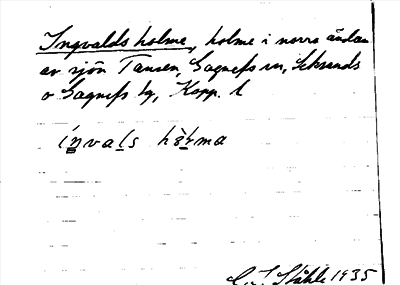 Ingvalds holme, holme i norra ändan
av sjön Tansen, Gagnefs sn, Leksands
o Gagnefs tg, Kopp. l
íŋvals hòlma
Ståhle 1935